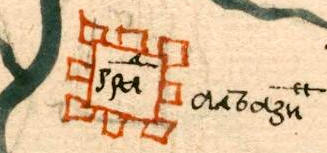 град
албазин